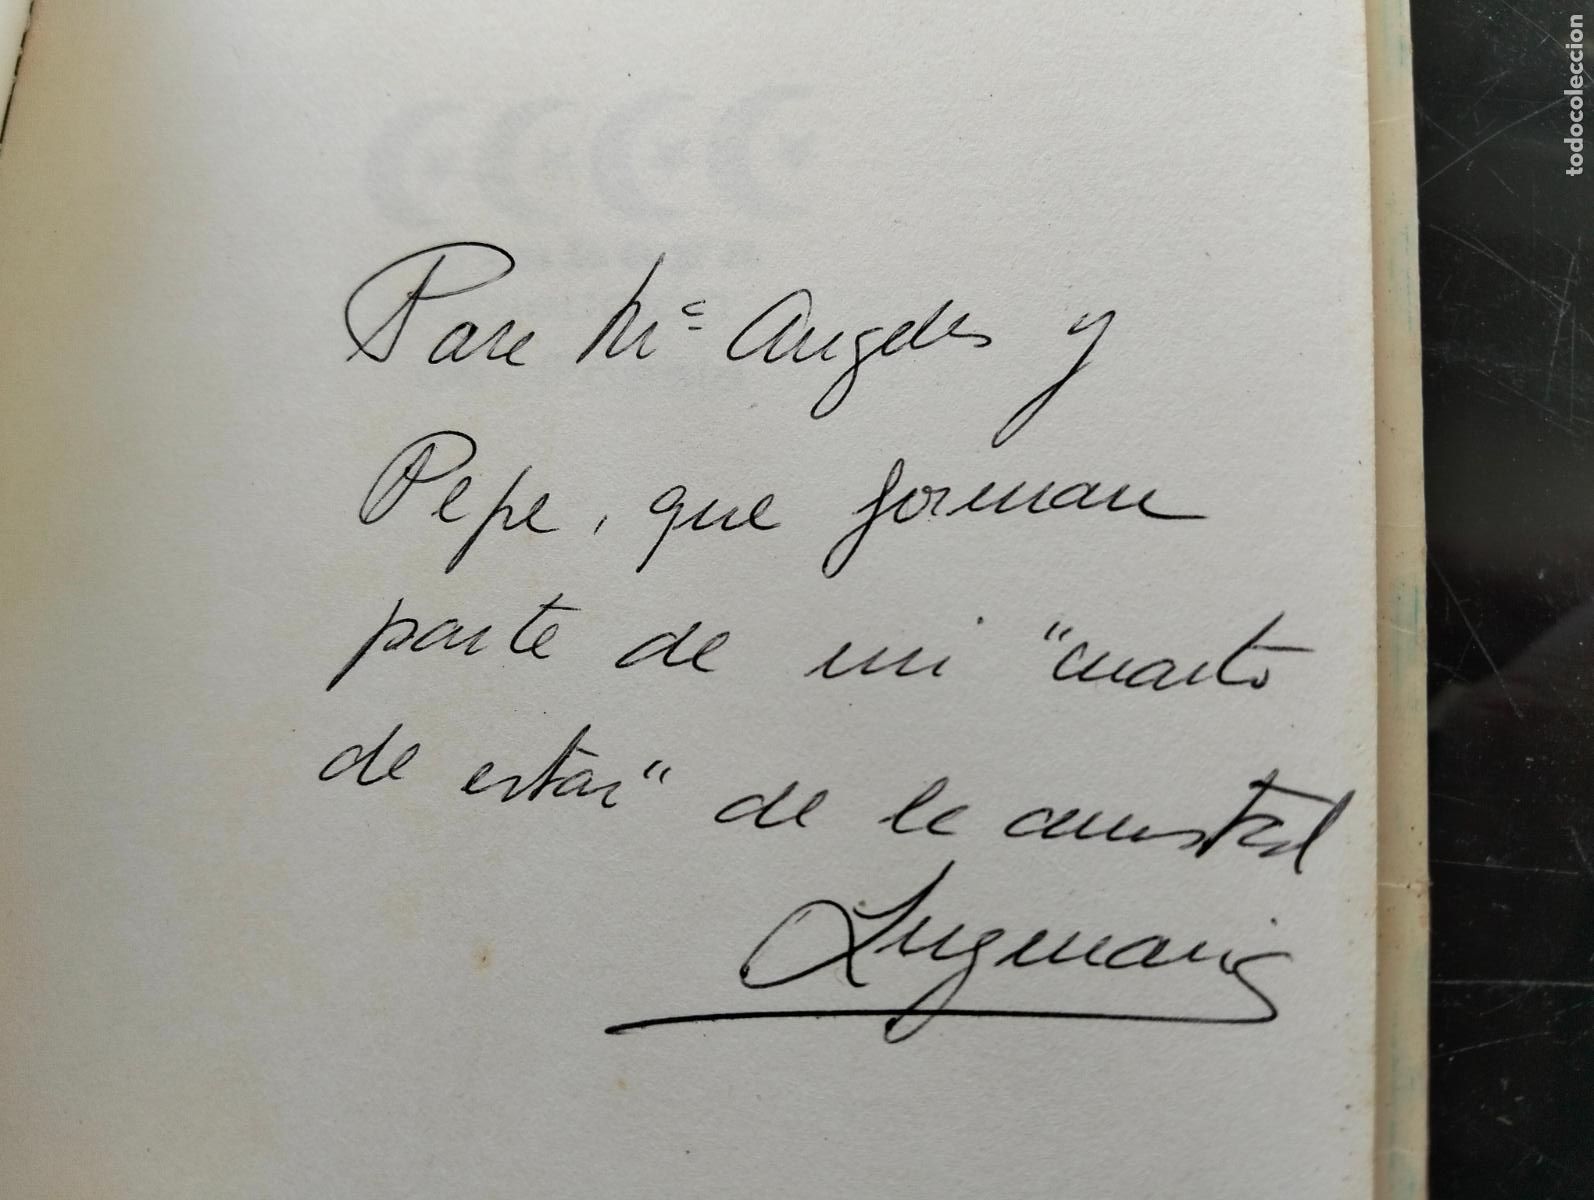 Para Mª Angeles y
Pepe, que forman
parte de mi "cuarto
de estar" de la amistad
Luzmaría
todocoleccion